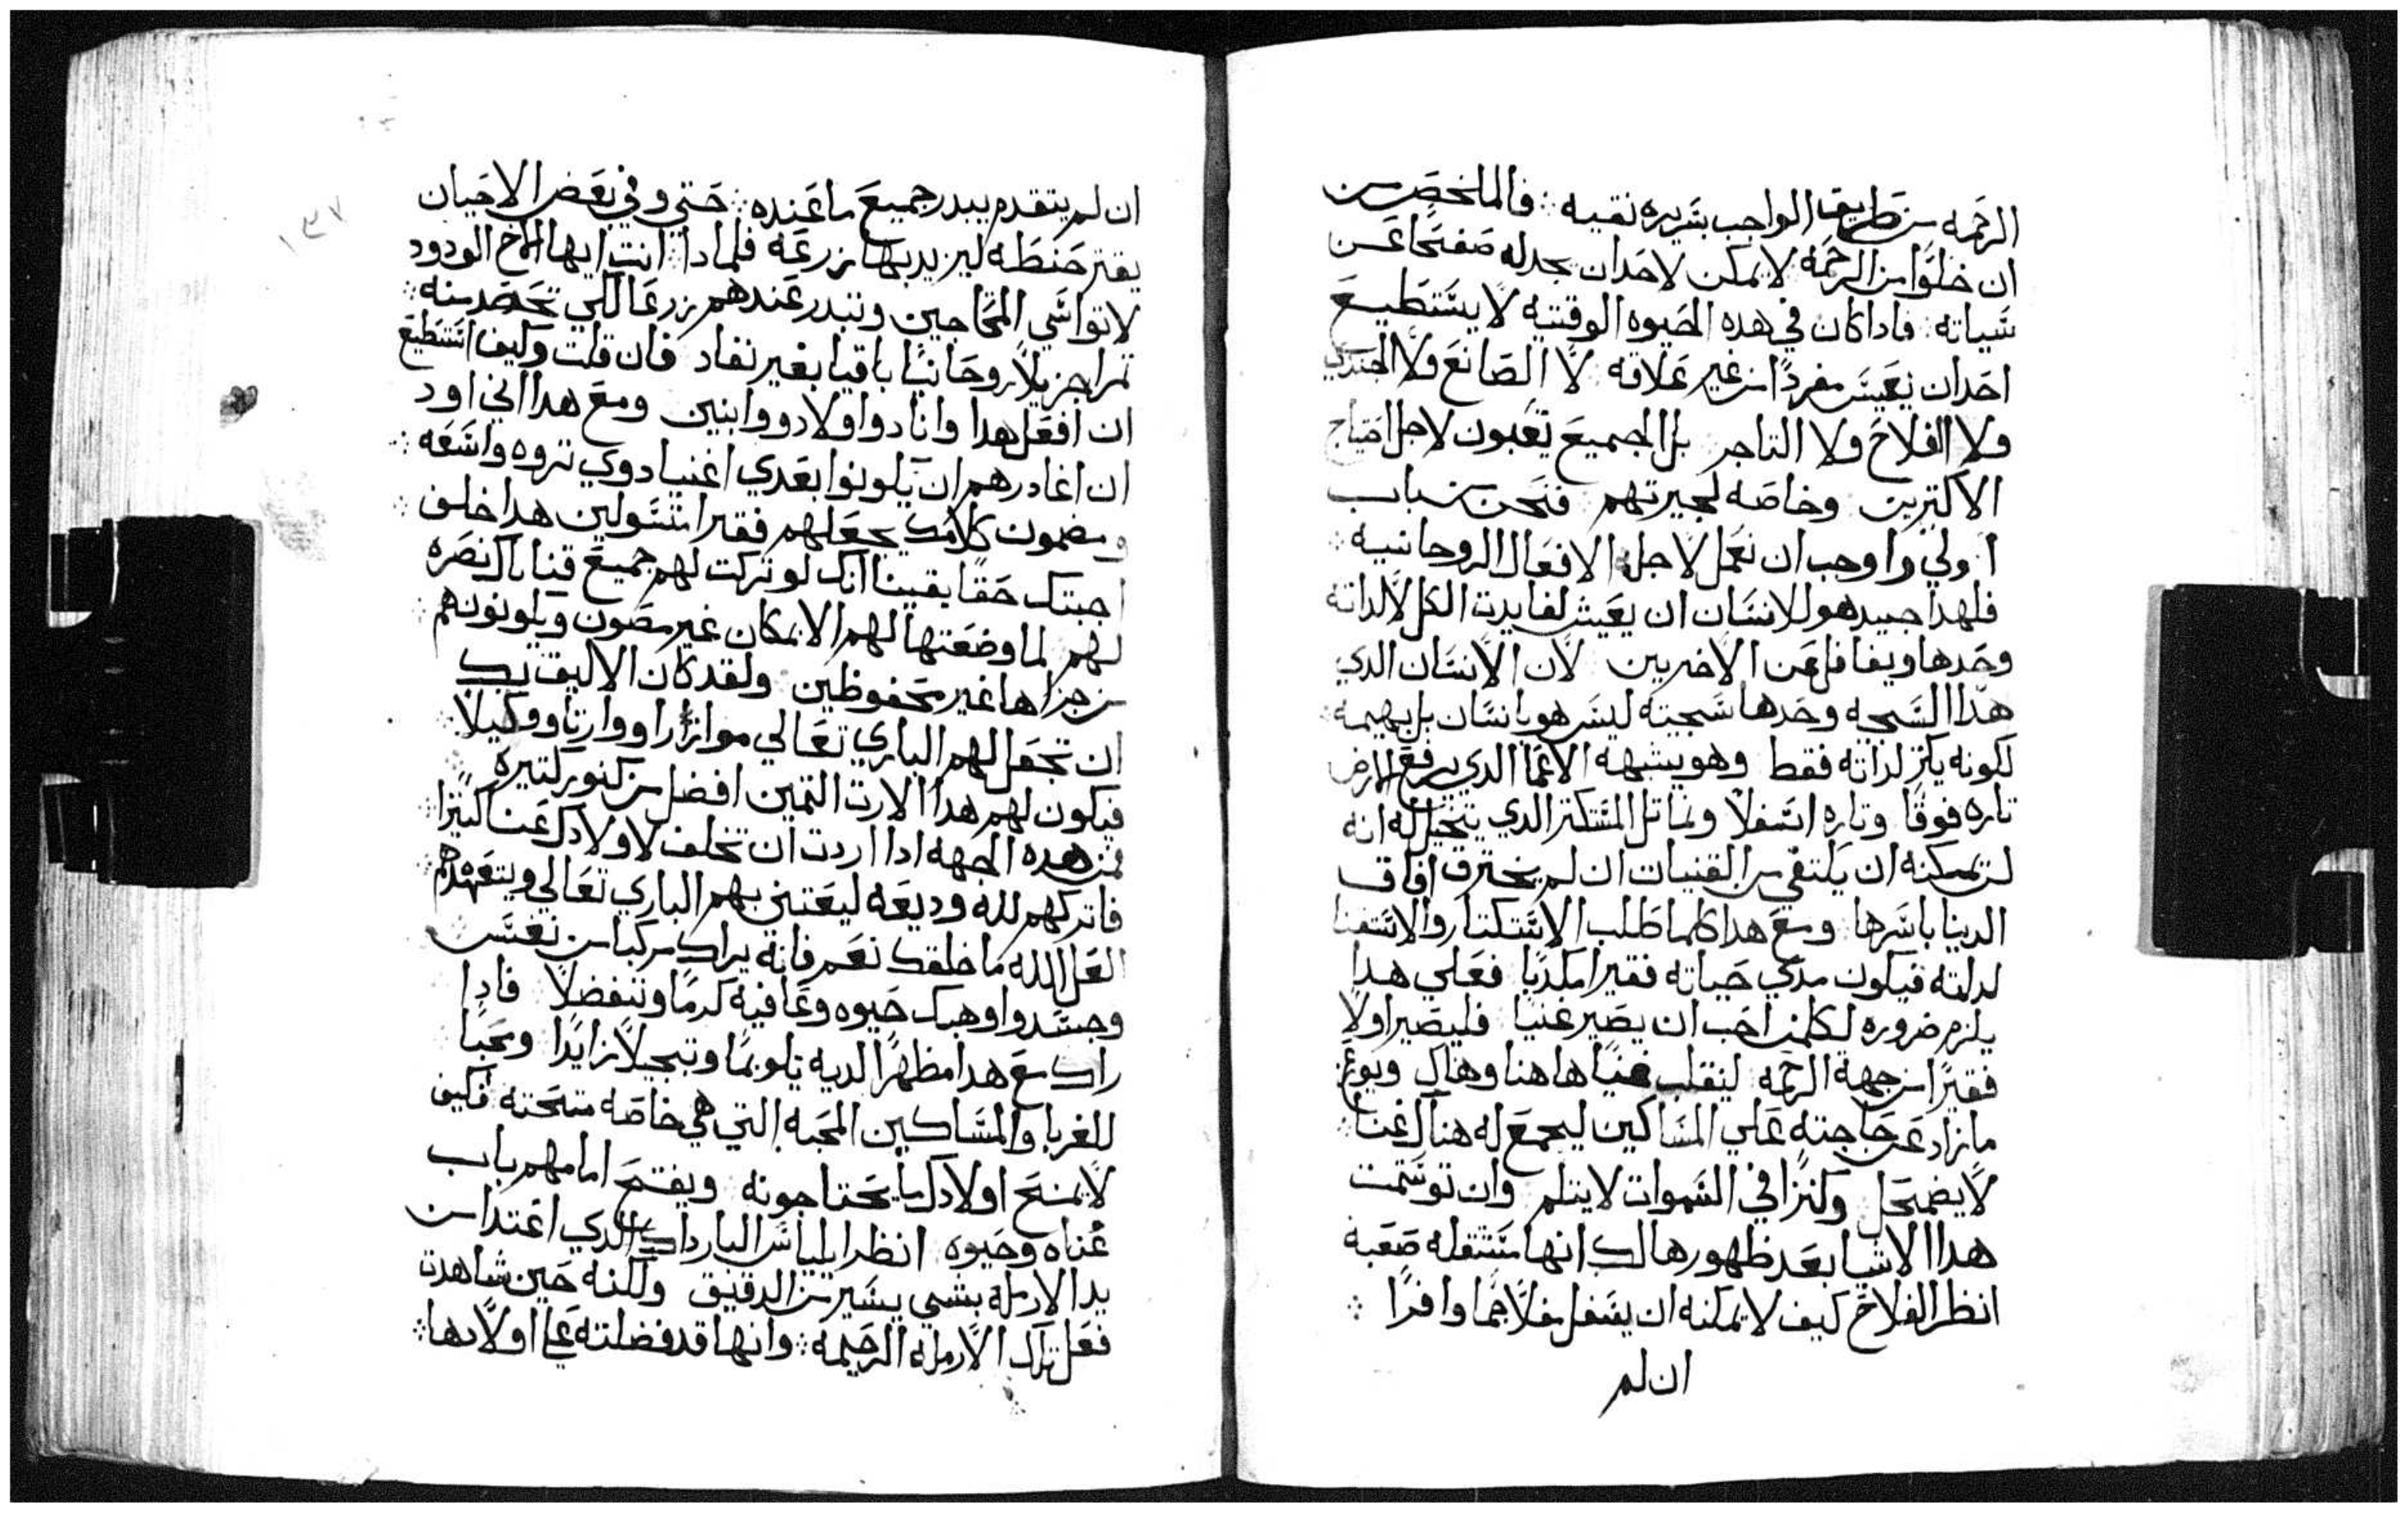 الرحمه من طريق الواجب بسريره نقيه ؞ فالملخص من
ان خلوا من الرحمة لا يمكن لاحد ان يجد له صفحًا عن
سياته ؞ فاداكان في هده الحيوه الوقتيه لا يستطيع
احد ان يعيش مفردًا من غير علاقه لا الصانع ولا الجندي
ولا الفلاح ولا التاجر بل الجميع يتعبون لاجل احتياج
الاكترين وخاصه لجيرتهم فنحن من باب
اولي واوجب ان نعمل لاجل الافعال الروحانيه ؞
فلهدا جيد هو للانسان ان يعيش لفايدت الكل لا لداته
وحدها ويغافل عن الاخريين لان الانسان الدي
هدا السجيه وحدها سجيته ليس هو بانسان بل بهيمه ؞
لكونه يكنز لداته فقط وهو يشبهه الاعما الدي يرفع الارض
تاره فوقا وتاره اسفلا ويماتل المستكتر الدي يتخيل له انه
لن يمكنه ان يكتفي من القنيات ان لم يخترق افاق
الدينا باسرها ومع هدا كلما طلب الاستكتار والاستغنا
لداته فيكون مدي حياته فقيرا مكديا فعلي هدا
يلزم ضروره لكلمن احب ان يصير غنيا فليصير اولا
فقيرًا من جهة الرحمه لينقلب غنيا هاهنا وهناك ويوزع
مازاد عن حاجته علي المساكين ليجمع له هناك غنا
لا يضمحل وكنزا في السموات لا يتلم وان توسمت
هدا الاشيا بعد ظهورها لك انها مستثقله صعبة
انظر الفلاح كيف لا يمكنه ان يستغل مغلًا جمًا وافرًا ؞
ان لم
١٣٧
ان لم يتقدم يبدر جميع ما عنده ؞ حتي وفي بعض الاحيان
يقتر حنطه ليزيد بها زرعه فلمادا انت ايها الاخ الودود
لا تواسي المحتاجين وتبدر عندهم زرعا لكي تحصد منه ؞
تمرا جزيلا روحانيا باقيا بغير نفاد فان قلت وكيف استطيع
ان افعل هدا وانا دوا اولاد ووابنين ومع هدا اني اود
ان اغادرهم ان يكونوا بعدي اغنيا دوي تروه واسعه ؞
ومضمون كلامك يجعلهم فقرا متسولين هدا خلف ؞
اجبتك حقًا يقينا انك لو تركت لهم جميع قناياك نصره
لهم لما وضعتها لهم الا بمكان غير مصون ويكونون هم ؞
من جراها غير محفوظين ولقد كان الاليق بك
ان تجعل لهم الباري تعالي موازرا ووارتا ووكيلا ؞
فيكون لهم هدا الارت التمين افضل من كنوز كتيرة
فمن هده الجهه ادا اردت ان تخلف لاولادك غنا كتيرا ؞
فاتركهم لله وديعه ليعتني بهم الباري تعالي ويتعهدهم ؞
العل الله ما خلقك نعم فانه براك مركبا من نفس
وجسد واوهبك حيوه وعافيه كرمًا وتفضلا فادا
راك مع هدا مظهرًا لديه تكريمًا وتبجيلًا زايدا ومحبا
للغربا والمساكين المحبه التي هي خاصه متحته فكيف
لا يمنح اولادك ما يحتاجونه ويفتح امامهم باب
غناه وحيوه انظر ايلياس البار داك الدي اغتدا من
يد الارمله بشي يسير من الدقيق ولكنه حين شاهدت
فعل تلك الارمله الرحيمه ؞ وانها قد فضلته علي اولادها ؞